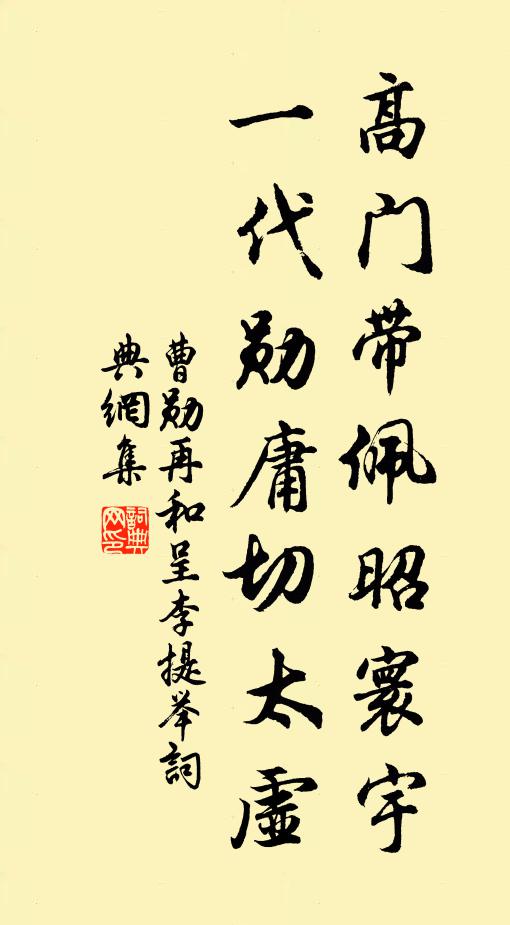 高门带佩昭寰宇
一代勋庸切太虚
曹勋再和呈李提举詞
典網集
詞典网印